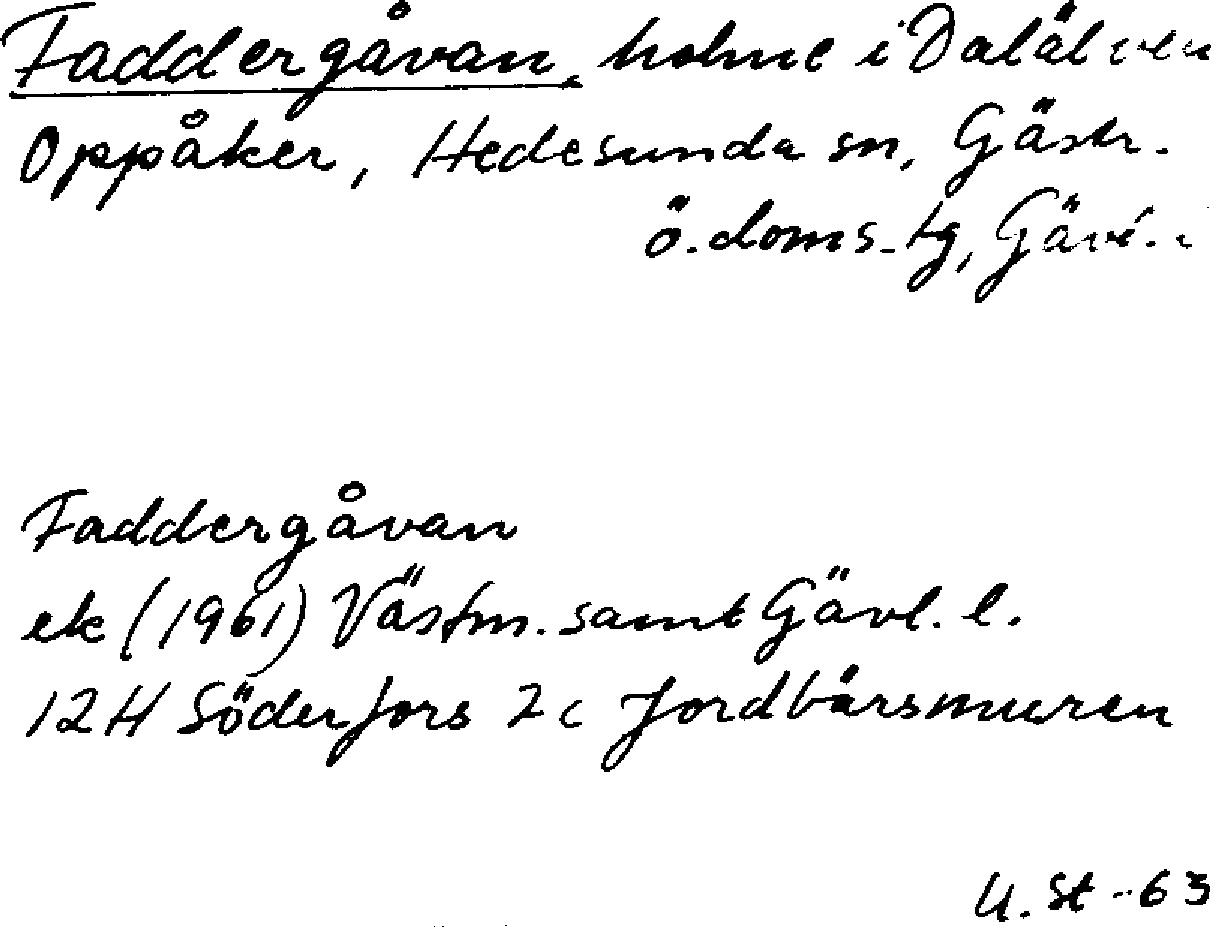 Faddergåvan, holme i Dalälven
Oppåker, Hedesunda sn, Gästr.
ö. doms. tg, Gävl.
Faddergåvan
ek (1961) Västm. samt Gävl. l.
12H Söderfors 2c Jordbärsmuren
U. St -63